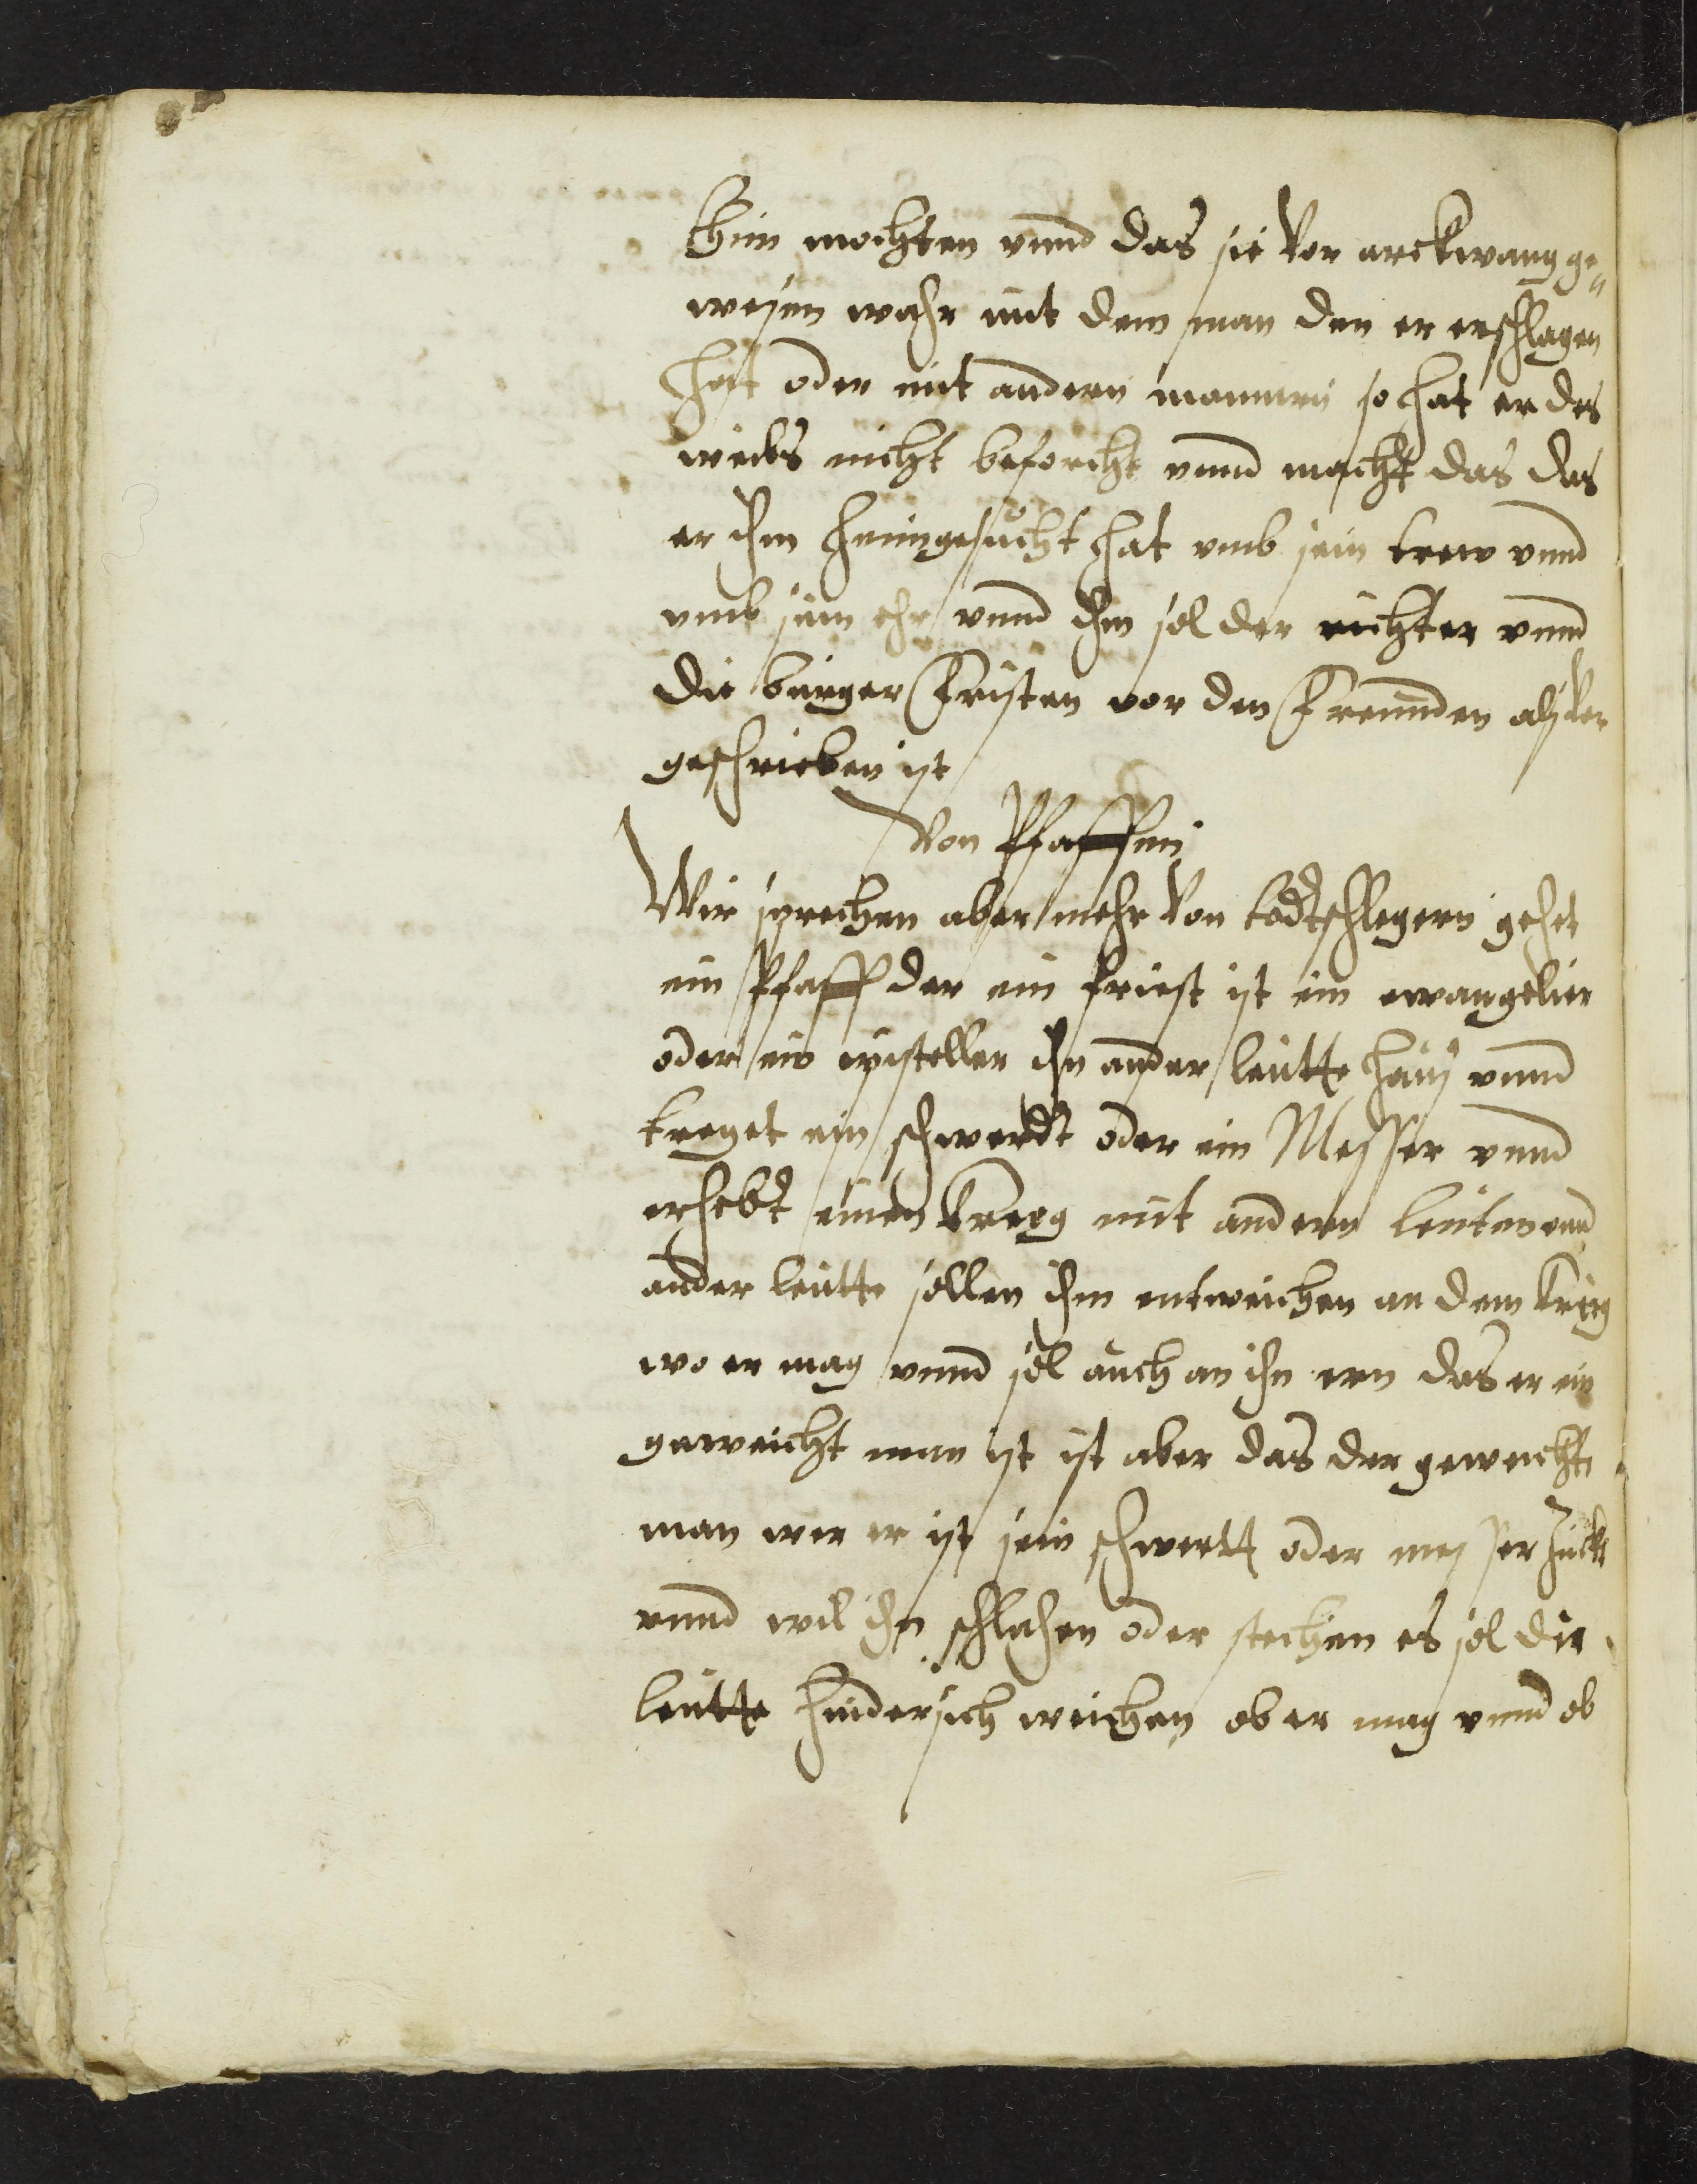 thun mochten vnnd das sie vor arckwang ge¬
wesen wahr mit dem man den er erschlagen
hat oder mit andern mannern so hat er des
weibs nicht beforcht vnnd macht das das
er ihm heimgesücht hat vmb sein trew vnnd
vmb sein ehr vnnd ihm sol der richter vnnd
die burger fristen vor den freunden als vor
geschrieben ist
Von Pfaffen
Wir sprechen aber mehr von todtschlegern gehet
ein Pfaff der ein priest ist ein ewangelier
oder ein episteller ihn ander leutte haus vnnd
treget ein schwerdt oder ein Messer vnnd
erhebt einen krieg mit andern leuten vnnd
ander leutte sollen ihm entweichen an dem krieg
wo er mag vnnd sol auch an ihn ern das er ein
geweicht man ist ist aber das der geweichte
man wer er ist sein schwertt oder messer zückt
vnnd wil ihn schlahen oder stechen es sol die
leutte hindersich weichen ob er mag vnnd ob